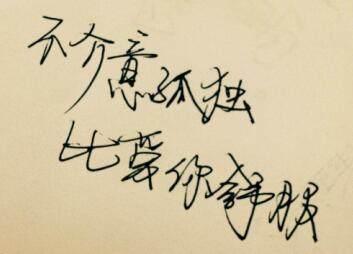 不介意孤独
比爱你舒服